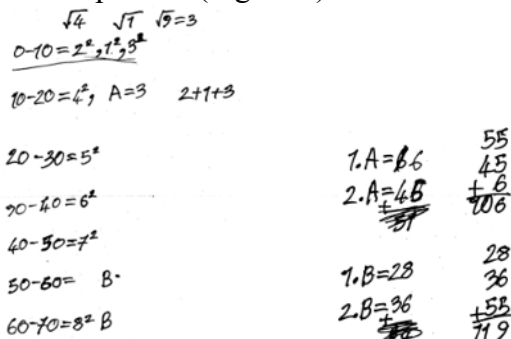 √4 √1 √9=3
0-10=2²,1²,3²
10-20=4², A=3 2+1+3
20-30=5²
30-40=6²
40-50=7²
50-60= B-
60-70=8² B
1.A=6
2.A=45
+
55
45
+ 6
106
1.B=28
2.B=36
+
28
36
+55
119